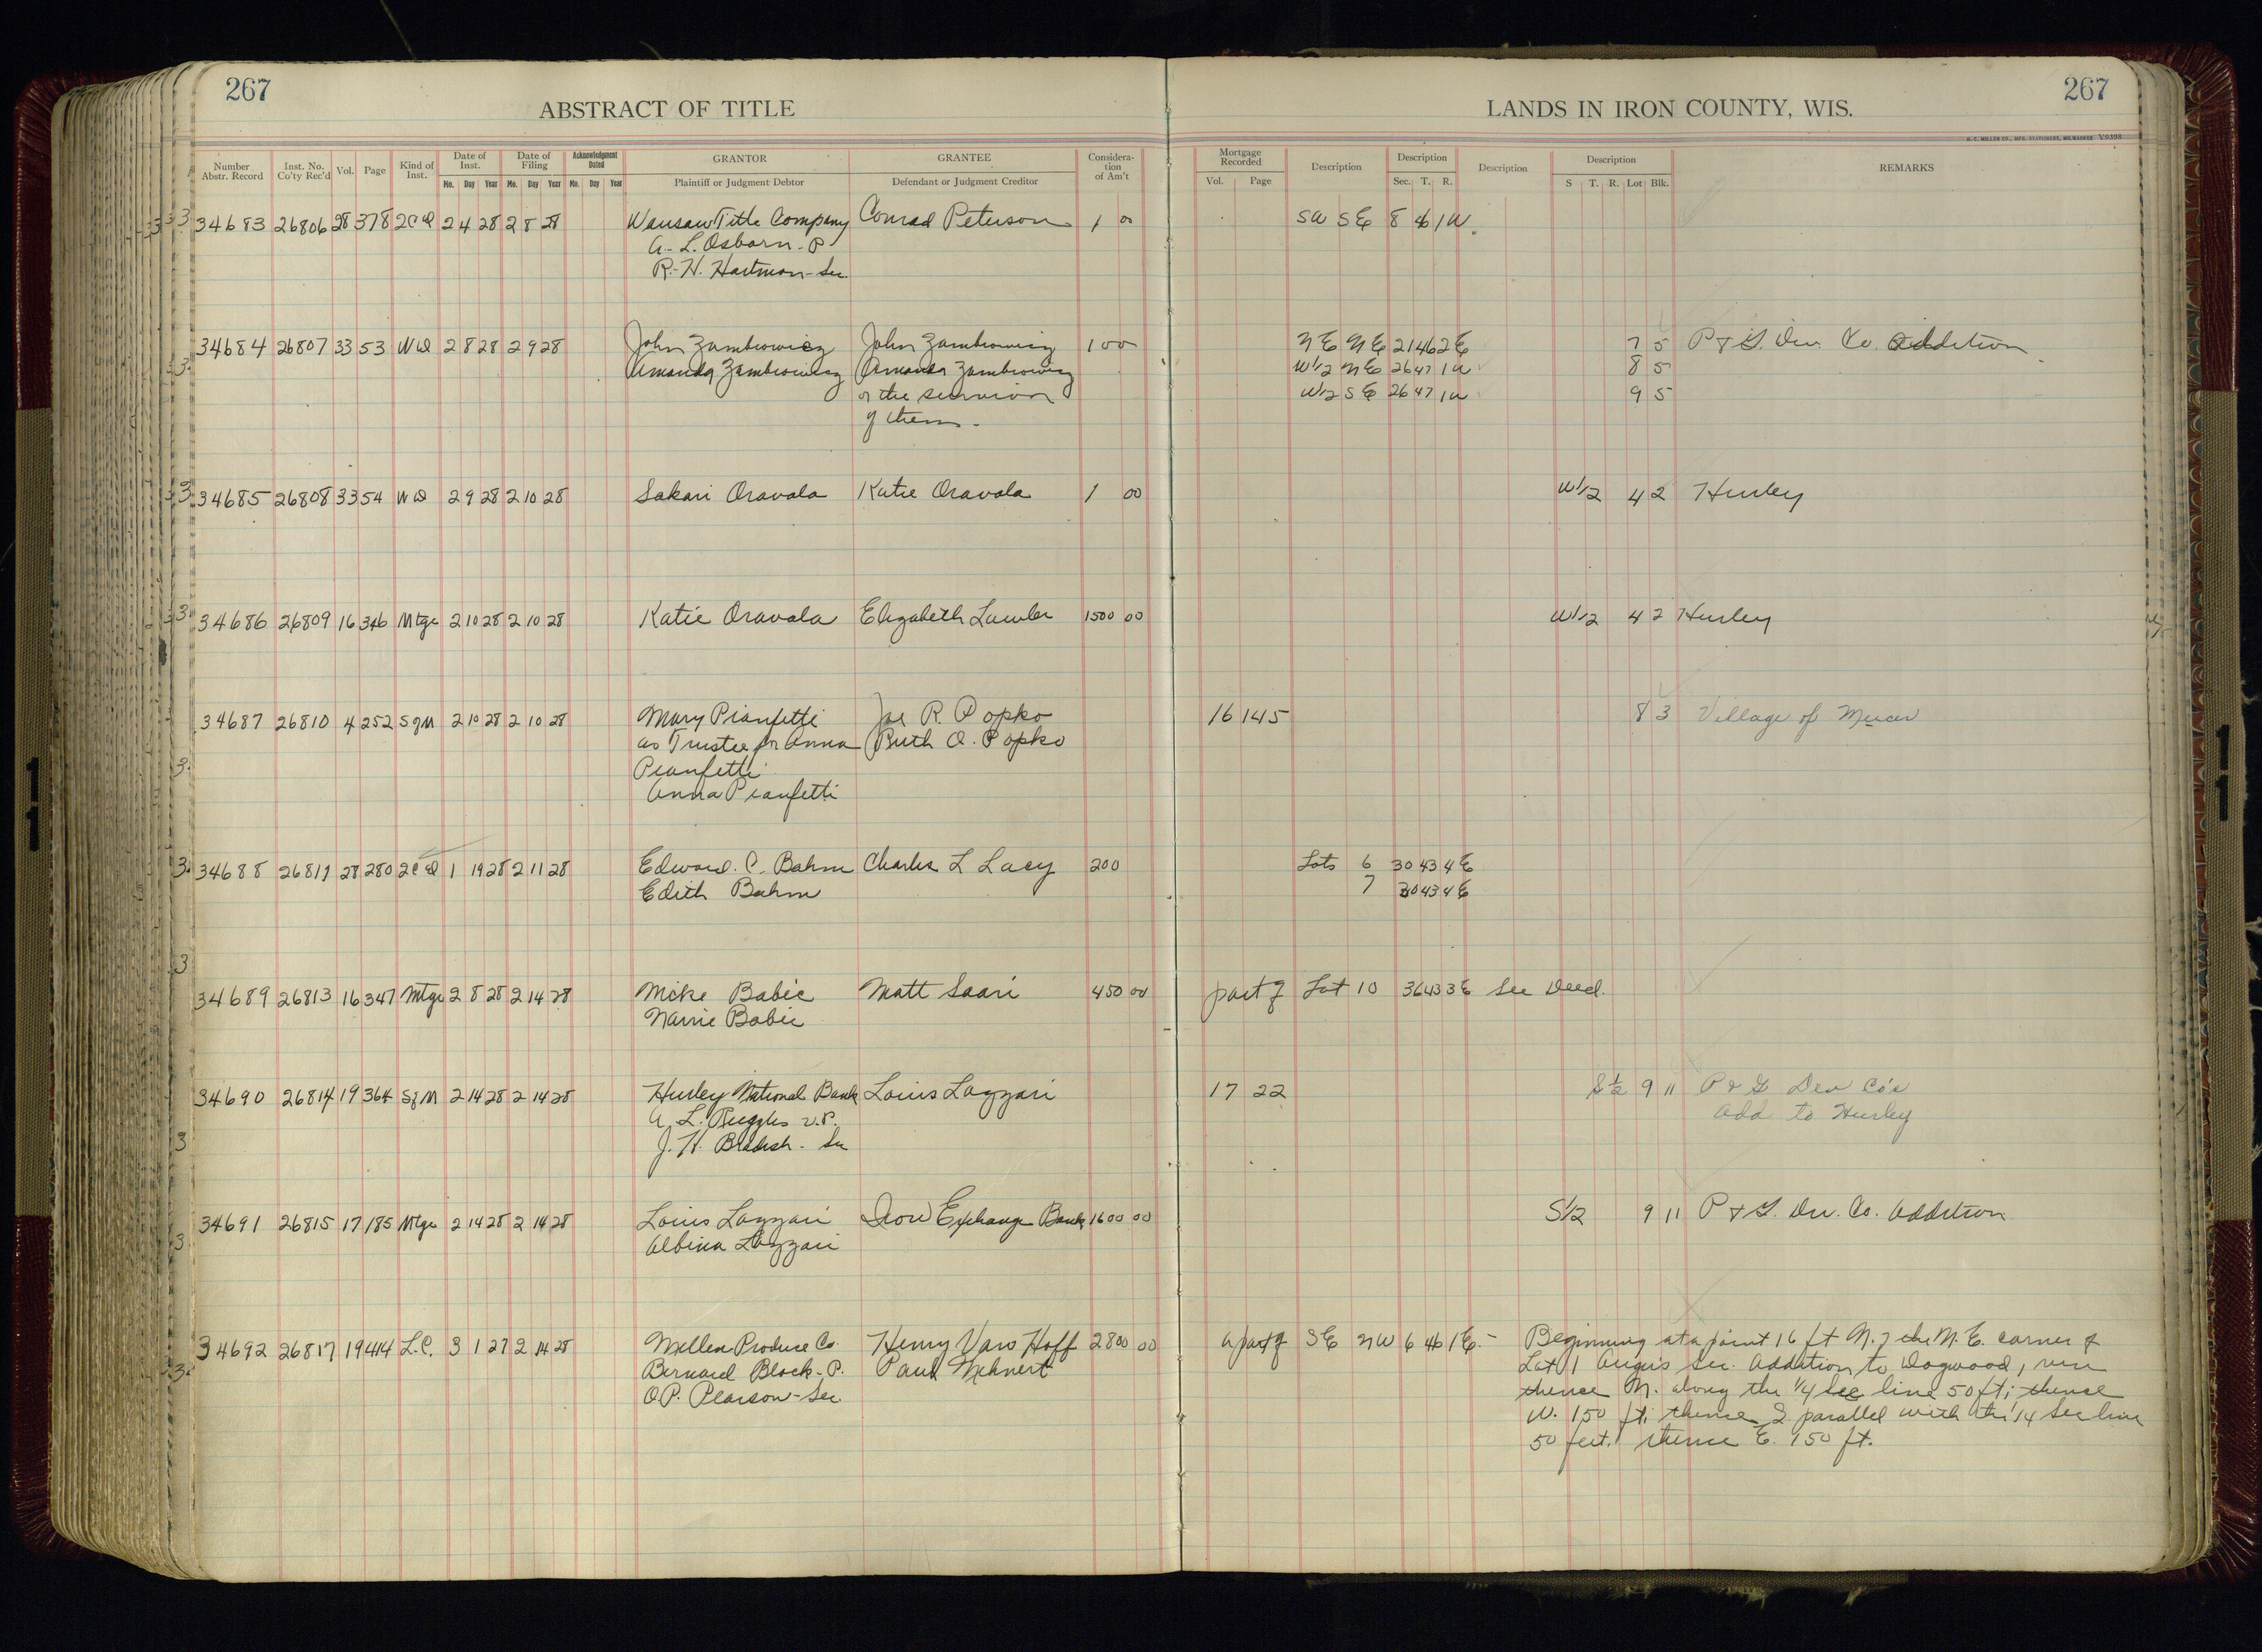 267
ABSTRACT OF TITLE
LANDS IN IRON COUNTY, WIS.
267
H. C. MILLER CO., MFG. STATIONERS, MILWAUKEE Y9398
Number Abstr. Record | Inst. No. Co'ty Rec'd | Vol. | Page | Kind of Inst. | Date of Inst. Mo. Day Year | Date of Filing Mo. Day Year | Acknowledgment Dated Mo. Day Year | GRANTOR Plaintiff or Judgment Debtor | GRANTEE Defendant or Judgment Creditor | Consideration of Am't | Mortgage Recorded Vol. Page | Description | Description Sec. T. R. | Description | Description S T. R. Lot Blk. | REMARKS
34683 26806 28 378 2CD 2 4 28 2 8 28 Wausau Title Company Conrad Peterson 1 00 SW SE 8 46 1W
A. L. Osborn - P
R. H. Hartman - Sec
34684 26807 33 53 WD 2 8 28 2 9 28 John Zambrowicz John Zambrowicz 1 00 NE NE 21 46 2E 7 5 P & G. Dev. Co. Addition
Amanda Zambrowicz Amanda Zambrowicz W1/2 NE 26 47 1W 8 5
or the survivor W1/2 SE 26 47 1W 9 5
of them.
34685 26808 33 54 WD 2 9 28 2 10 28 Sakari Oravala Katie Oravala 1 00 W1/2 4 2 Hurley
34686 26809 16 346 Mtge 2 10 28 2 10 28 Katie Oravala Elizabeth Lawler 1500 00 W1/2 4 2 Hurley
34687 26810 4 252 SgM 2 10 28 2 10 28 Mary Pianfetti Joe R. Popko 16 145 8 3 Village of Mercer
as Trustee for Anna Ruth O. Popko
Pianfetti
Anna Pianfetti
34688 26811 28 280 2CD 1 19 28 2 11 28 Edward. C. Bahm Charles L Lacy 200 Lots 6 30 43 4E
Edith Bahm 7 30 43 4E
34689 26813 16 347 Mtge 2 8 28 2 14 28 Mike Babic Matt Saari 450 00 part of Lot 10 36 43 3E See Deed.
Babic
34690 26814 19 364 SgM 2 14 28 2 14 28 Hurley National Bank Louis Lazzari 17 22 S 1/2 9 11 P & G Dev Co's
A. L. Ruggles V.P. Add to Hurley
J. H. Bradish - Sec
34691 26815 17 185 Mtge 2 14 28 2 14 28 Louis Lazzari Iron Exchange Bank 1600 00 S1/2 9 11 P & G. Dev. Co. Addition
Albina Lazzari
34692 26817 19 414 L.C. 3 1 27 2 14 28 Mellen Produce Co. Henry Van Hoff 2800 00 a part of SE NW 6 46 1E. - Beginning at a point 16 ft N. of the N. E. corner of
Bernard Block - P. Paul Mehnert Lot 1 Sec. Addition to Dogwood, run
O.P. Pearson - Sec. thence N. along the 1/4 Sec line 50 ft; thence
W. 150 ft; thence S. parallel with the 1/4 Sec line
50 feet. thence E. 150 ft.